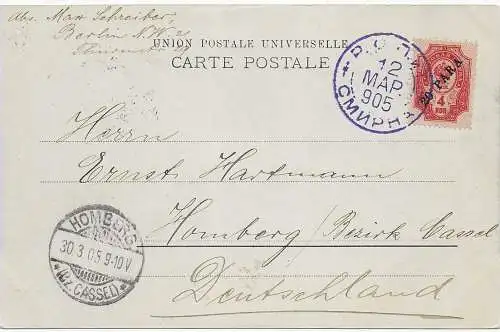 Abs. Max Schreiber,
Berlin N.W. 21
UNION POSTALE UNIVERSELLE
CARTE POSTALE
12
МАР
905
СМИРНА
20 PARA
4
КОП
Herrn
Ernst Hartmann
Homberg /Bezirk Cassel
Deutschland
HOMBERG
30 3 05 9-10 V
(BZ. CASSEL)